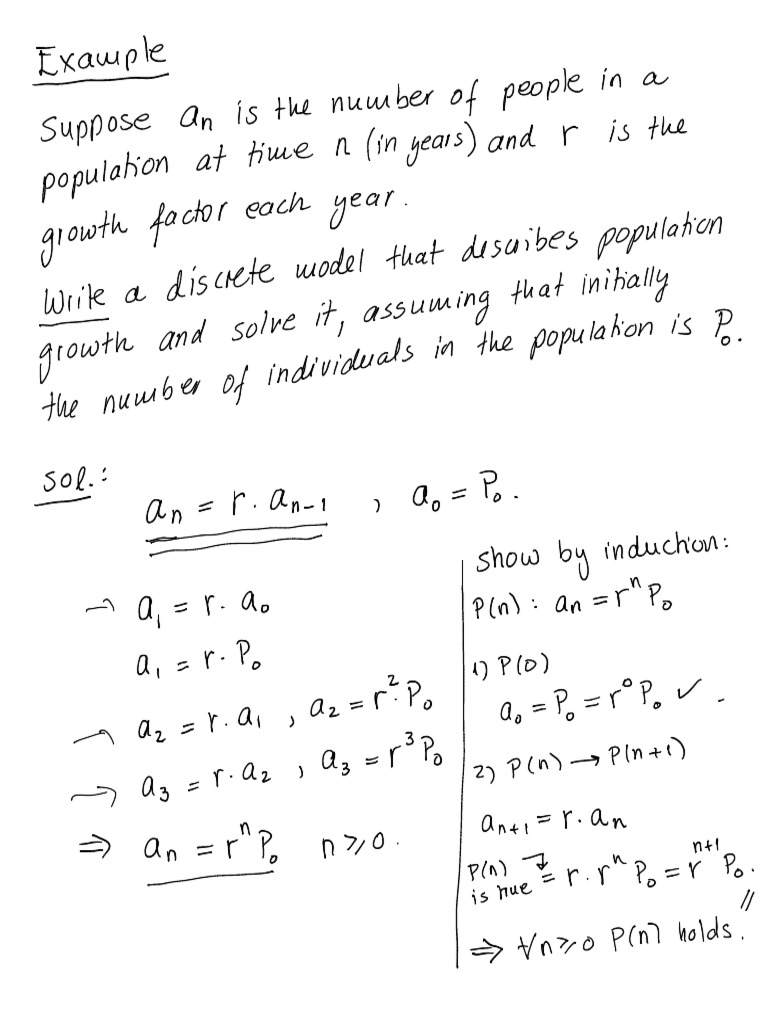 Example
Suppose aₙ is the number of people in a
population at time n (in years) and r is the
growth factor each year.
Write a discrete model that describes population
growth and solve it, assuming that initially
the number of individuals in the population is P₀.
sol.:
aₙ = r · aₙ₋₁ , a₀ = P₀.
→ a₁ = r · a₀
a₁ = r · P₀
→ a₂ = r · a₁ , a₂ = r² · P₀
→ a₃ = r · a₂ , a₃ = r³ P₀
⇒ aₙ = rⁿ P₀ n ⩾ 0.
show by induction:
P(n) : aₙ = rⁿ P₀
1) P(0)
a₀ = P₀ = r⁰ P₀ ✓.
2) P(n) → P(n+1)
aₙ₊₁ = r · aₙ
P(n) is true ↴ = r · rⁿ P₀ = rⁿ⁺¹ P₀.
//
⇒ ∀n⩾0 P(n) holds.